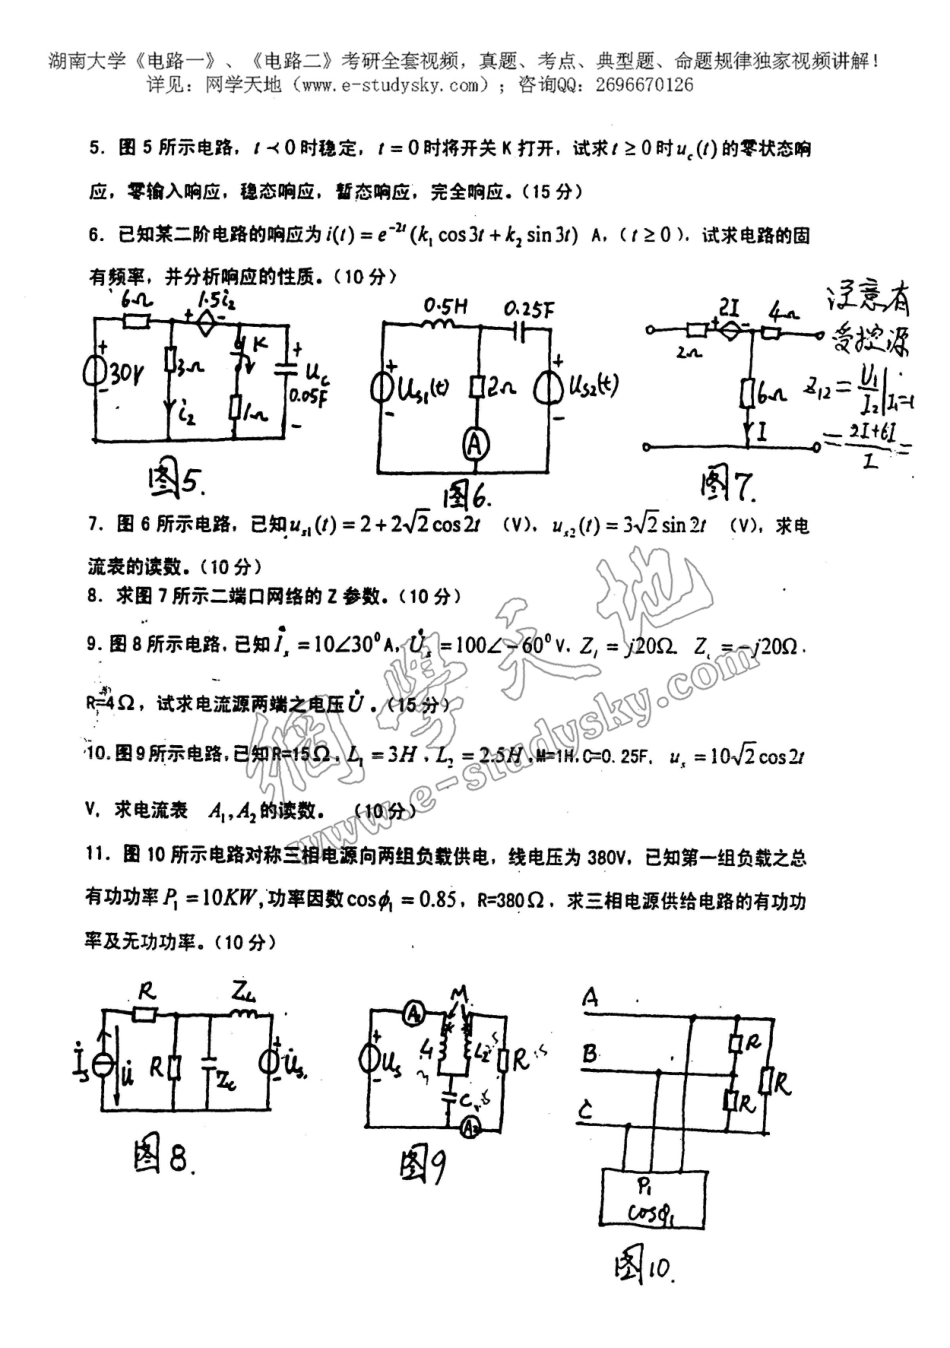 湖南大学《电路一》、《电路二》考研全套视频，真题、考点、典型题、命题规律独家视频讲解！
详见：网学天地（www.e-studysky.com）；咨询QQ：2696670126
5. 图 5 所示电路，t<0时稳定，t=0时将开关 K 打开，试求t≥0时u_c(t)的零状态响
应，零输入响应，稳态响应，暂态响应，完全响应。(15 分)
6. 已知某二阶电路的响应为i(t)=e^{-2t}(k₁cos3t+k₂sin3t) A，（t≥0）。试求电路的固
有频率，并分析响应的性质。(10 分)
6Ω 1.5i₂
30V 3Ω i₂ K 1Ω U_c 0.05F
图5.
0.5H 0.25F
U_{s1}(t) 2Ω A U_{s2}(t)
图6.
2I 4Ω
2Ω 6Ω I
图7.
注意有
受控源
7. 图 6 所示电路，已知u_{s1}(t)=2+2√2cos2t （V），u_{s2}(t)=3√2sin2t （V），求电
流表的读数。(10 分)
8. 求图 7 所示二端口网络的 Z 参数。(10 分)
9. 图 8 所示电路，已知İ_s=10∠30⁰A，U̇_s=100∠-60⁰V，Z_l=j20Ω Z_c=-j20Ω，
R=4Ω，试求电流源两端之电压U̇。(15 分)
10. 图 9 所示电路，已知R=15Ω，L₁=3H，L₂=2.5H，M=1H，C=0.25F，u_s=10√2cos2t
V，求电流表 A₁,A₂的读数。 (10 分)
11. 图 10 所示电路对称三相电源向两组负载供电，线电压为 380V，已知第一组负载之总
有功功率P₁=10KW，功率因数cosφ₁=0.85，R=380Ω，求三相电源供给电路的有功功
率及无功功率。(10 分)
R Z_L
İ_s U̇ R Z_c U̇_s
图8.
A₁ M
U_s L₂ R
C A₂
图9
A
B
C
R R R
P₁
cosφ₁
图10.
網學天地
www.e-studysky.com